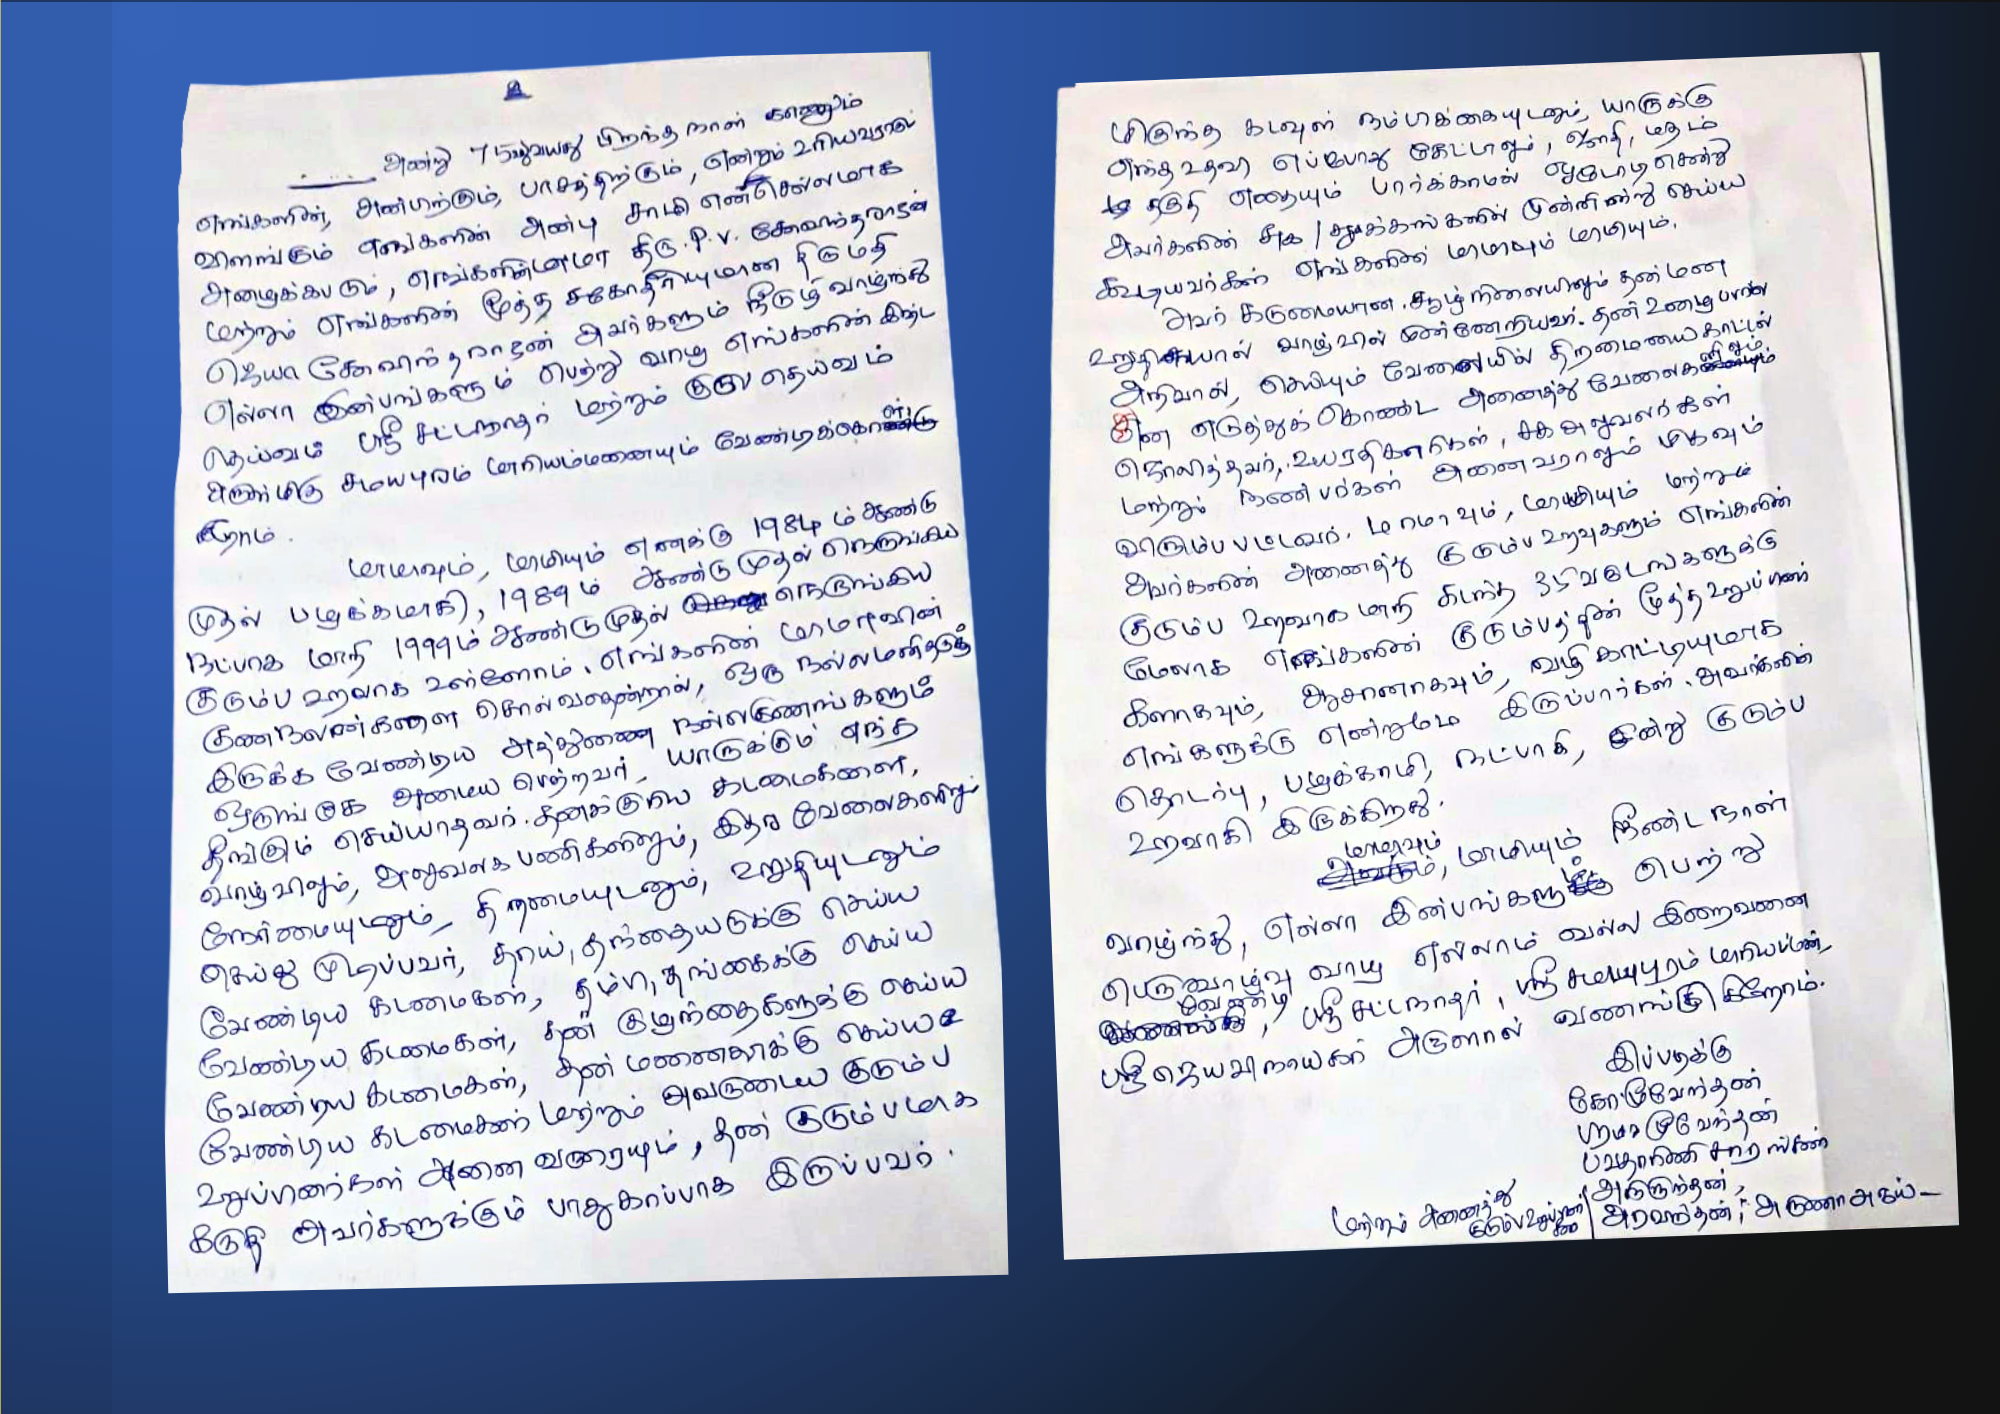 உ
அன்று 75வது வயது பிறந்த நாள் காணும்
எங்களின், அன்பிற்கும், பாசத்திற்கும், என்றும் உரியவராய்
விளங்கும் எங்களின் அன்பு சாமி என் செல்லமாக
அழைக்கபடும், எங்களின் மாமா திரு. P.V. கோவிந்தராஜன்
மற்றும் எங்களின் மூத்த சகோதரியுமான திருமதி
ஜெயா கோவிந்தராஜன் அவர்களும் நீடுழி வாழ்ந்து
எல்லா இன்பங்களும் பெற்று வாழ எங்களின் இஷ்ட
தெய்வம் ஸ்ரீ சட்டநாதர் மற்றும் குல தெய்வம்
அருள்மிகு சமயபுரம் மாரியம்மனையும் வேண்டிக்கொள்
கிறோம்.
மாமாவும், மாமியும் எனக்கு 1984 ம் ஆண்டு
முதல் பழக்கமாகி, 1989ம் ஆண்டு முதல் நெருங்கிய
நட்பாக மாறி 1999ம் ஆண்டு முதல் நெருங்கிய
குடும்ப உறவாக உள்ளோம். எங்களின் மாமாவின்
குணநலன்களை சொல்வதென்றால், ஒரு நல்லமனிதருக்கு
இருக்க வேண்டிய அத்துணை நல்லகுணங்களும்
ஒருங்கே அமைய பெற்றவர். யாருக்கும் எந்த
தீங்கும் செய்யாதவர். தனக்குரிய கடமைகளை,
வாழ்விலும், அலுவலக பணிகளிலும், இதர வேலைகளிலும்
நேர்மையுடனும், திறமையுடனும், உறுதியுடனும்
செய்து முடிப்பவர், தாய், தந்தையருக்கு செய்ய
வேண்டிய கடமைகள், தம்பி, தங்கைக்கு செய்ய
வேண்டிய கடமைகள், தன் குழந்தைகளுக்கு செய்ய
வேண்டிய கடமைகள், தன் மனைவிக்கு செய்ய
வேண்டிய கடமைகள் மற்றும் அவருடைய குடும்ப
உறுப்பினர்கள் அனைவரையும், தன் குடும்பமாக
கருதி அவர்களுக்கும் பாதுகாப்பாக இருப்பவர்.
மிகுந்த கடவுள் நம்பிக்கையுடனும், யாருக்கு
எந்த உதவி எப்போது கேட்டாலும், ஜாதி, மதம்
தகுதி எதையும் பார்க்காமல் ஓடோடி சென்று
அவர்களின் சுக / துக்கங்களில் முன்னின்று செய்ய
கூடியவர்கள் எங்களின் மாமாவும் மாமியும்.
அவர் கடுமையான சூழ்நிலையிலும் தன் மன
உறுதியால் வாழ்வில் முன்னேறியவர். தன் உழைப்பால்
அறிவால், செய்யும் வேலையில் திறமையை காட்டி
தான் எடுத்துக் கொண்ட அனைத்து வேலைகளிலும்
ஜொலித்தவர், உயரதிகாரிகள், சக அலுவலர்கள்
மற்றும் நண்பர்கள் அனைவராலும் மிகவும்
விரும்பபட்டவர். மாமாவும், மாமியும் மற்றும்
அவர்களின் அனைத்து குடும்ப உறவுகளும் எங்களின்
குடும்ப உறவாக மாறி கடந்த 35 வருடங்களுக்கு
மேலாக எங்களின் குடும்பத்தின் மூத்த உறுப்பினர்
களாகவும், ஆசானாகவும், வழிகாட்டியுமாக
எங்களுக்கு என்றுமே இருப்பார்கள். அவர்களின்
தொடர்பு, பழக்கமாகி, நட்பாகி, இன்று குடும்ப
உறவாகி இருக்கிறது.
மாமாவும், மாமியும் நீண்ட நாள்
வாழ்ந்து, எல்லா இன்பங்களும் பெற்று
பெருவாழ்வு வாழ எல்லாம் வல்ல இறைவனை
வேண்டி, ஸ்ரீ சட்டநாதர், ஸ்ரீ சமயபுரம் மாரியம்மன்,
ஸ்ரீ ஜெயவிநாயகர் அருளால் வணங்குகிறோம்.
இப்படிக்கு
கோமூவேந்தன்
மூவேந்தன்
அரவிந்தன்,
மற்றும் அனைத்து குடும்ப உறுப்பினர்கள்